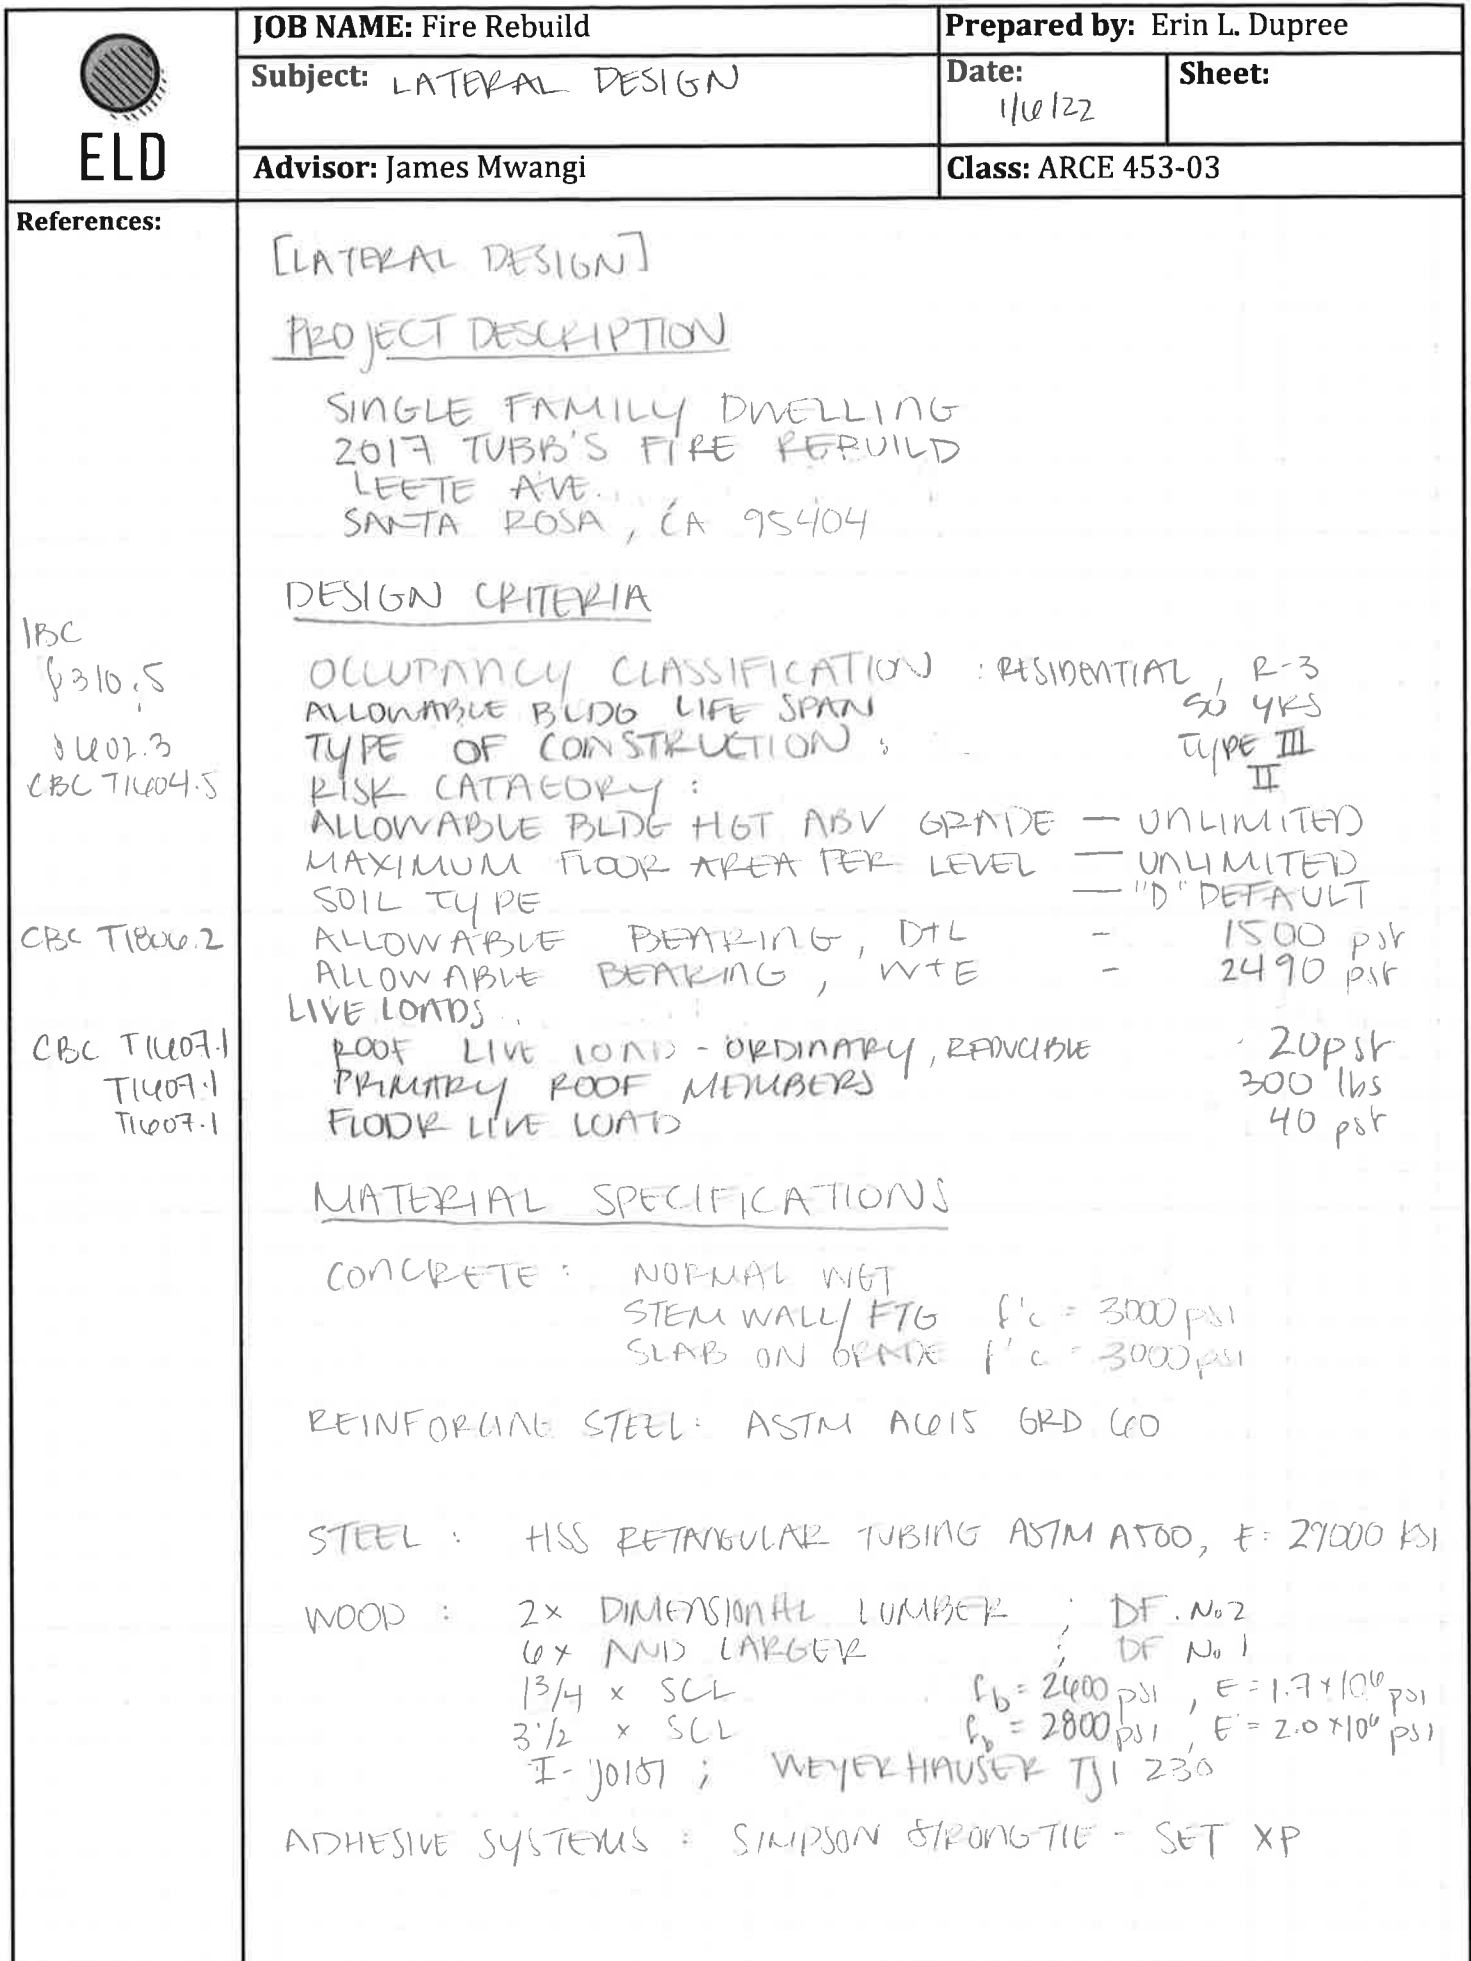 ELD
JOB NAME: Fire Rebuild
Prepared by: Erin L. Dupree
Subject: LATERAL DESIGN
Date: 1/6/22
Sheet:
Advisor: James Mwangi
Class: ARCE 453-03
References:
[LATERAL DESIGN]
PROJECT DESCRIPTION
SINGLE FAMILY DWELLING
2017 TUBB'S FIRE REBUILD
LEETE AVE.
SANTA ROSA, CA 95404
DESIGN CRITERIA
IBC
§310.5 OCCUPANCY CLASSIFICATION : RESIDENTIAL, R-3
ALLOWABLE BLDG LIFE SPAN 50 YRS
§602.3 TYPE OF CONSTRUCTION : TYPE III
CBC T1604.5 RISK CATAEORY : II
ALLOWABLE BLDG HGT ABV GRADE — UNLIMITED
MAXIMUM FLOOR AREA PER LEVEL — UNLIMITED
SOIL TYPE — "D" DEFAULT
CBC T1806.2 ALLOWABLE BEARING, D+L - 1500 psf
ALLOWABLE BEARING, W+E - 2490 psf
LIVE LOADS
CBC T1607.1 ROOF LIVE LOAD - ORDINARY, REDUCIBLE 20psf
T1607.1 PRIMARY ROOF MEMBERS 300 lbs
T1607.1 FLOOR LIVE LOAD 40 psf
MATERIAL SPECIFICATIONS
CONCRETE : NORMAL WGT
STEM WALL/FTG f'c = 3000 psi
SLAB ON GRADE f'c = 3000 psi
REINFORCING STEEL: ASTM A615 GRD 60
STEEL : HSS RETANGULAR TUBING ASTM A500, E= 29000 KSI
WOOD : 2x DIMENSIONAL LUMBER ; DF. No 2
6x AND LARGER ; DF No 1
1 3/4 x SCL fb = 2600 psi, E = 1.9 x 10^6 psi
3 1/2 x SCL fb = 2800 psi, E = 2.0 x 10^6 psi
I-JOIST ; WEYERHAUSER TJI 230
ADHESIVE SYSTEMS : SIMPSON STRONG TIE - SET XP